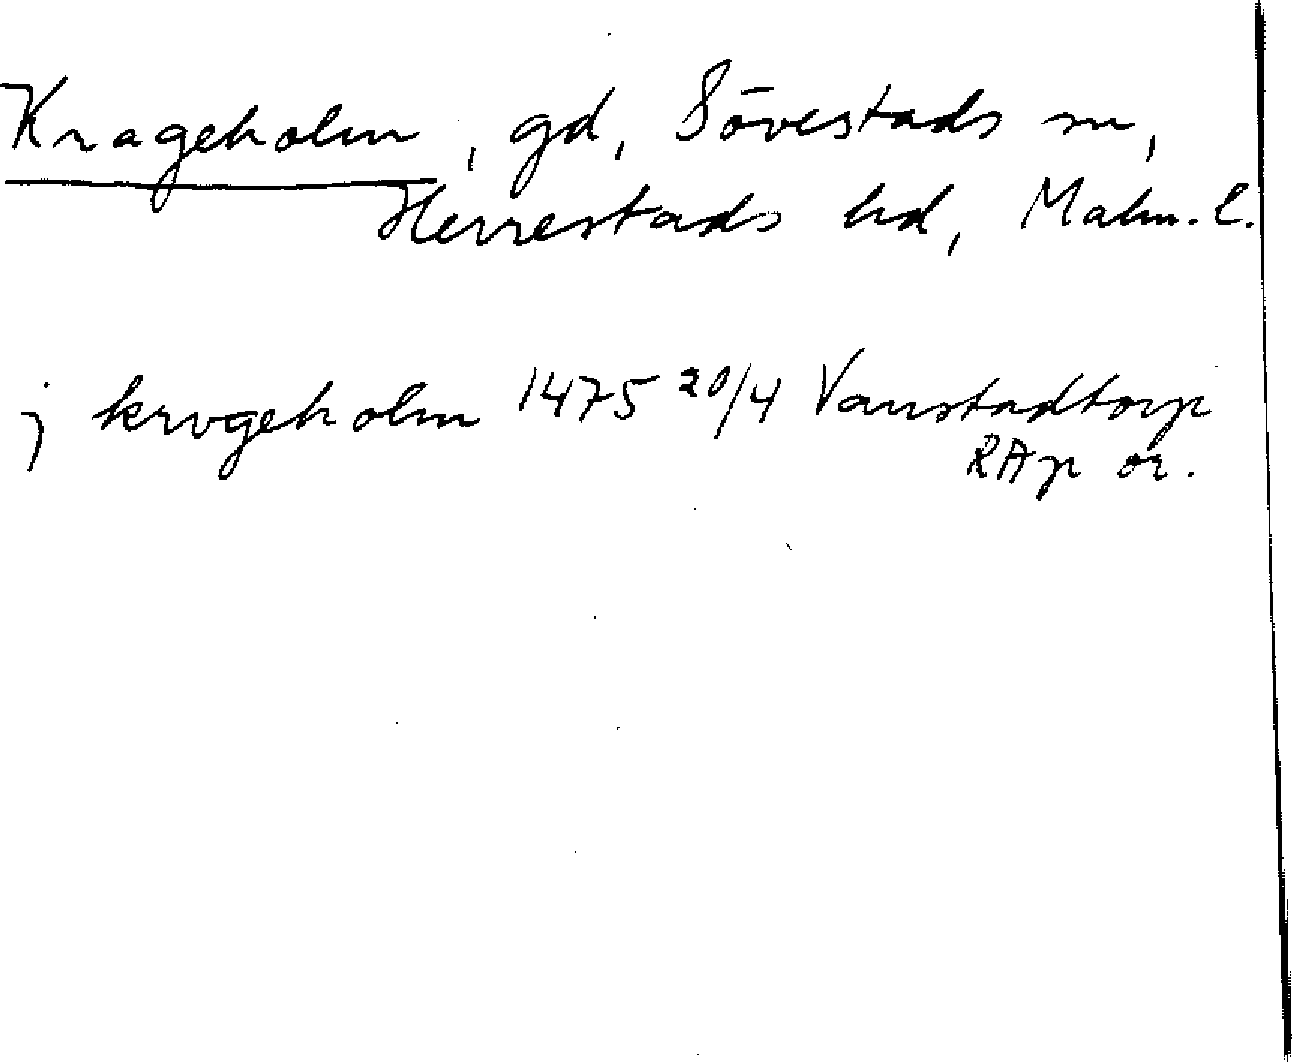 Krageholm, gd, Sövestads sn,
Herrestads hd, Malm. l.
j krogeholm 1475 20/4 Vanstadtorp
RAp or.